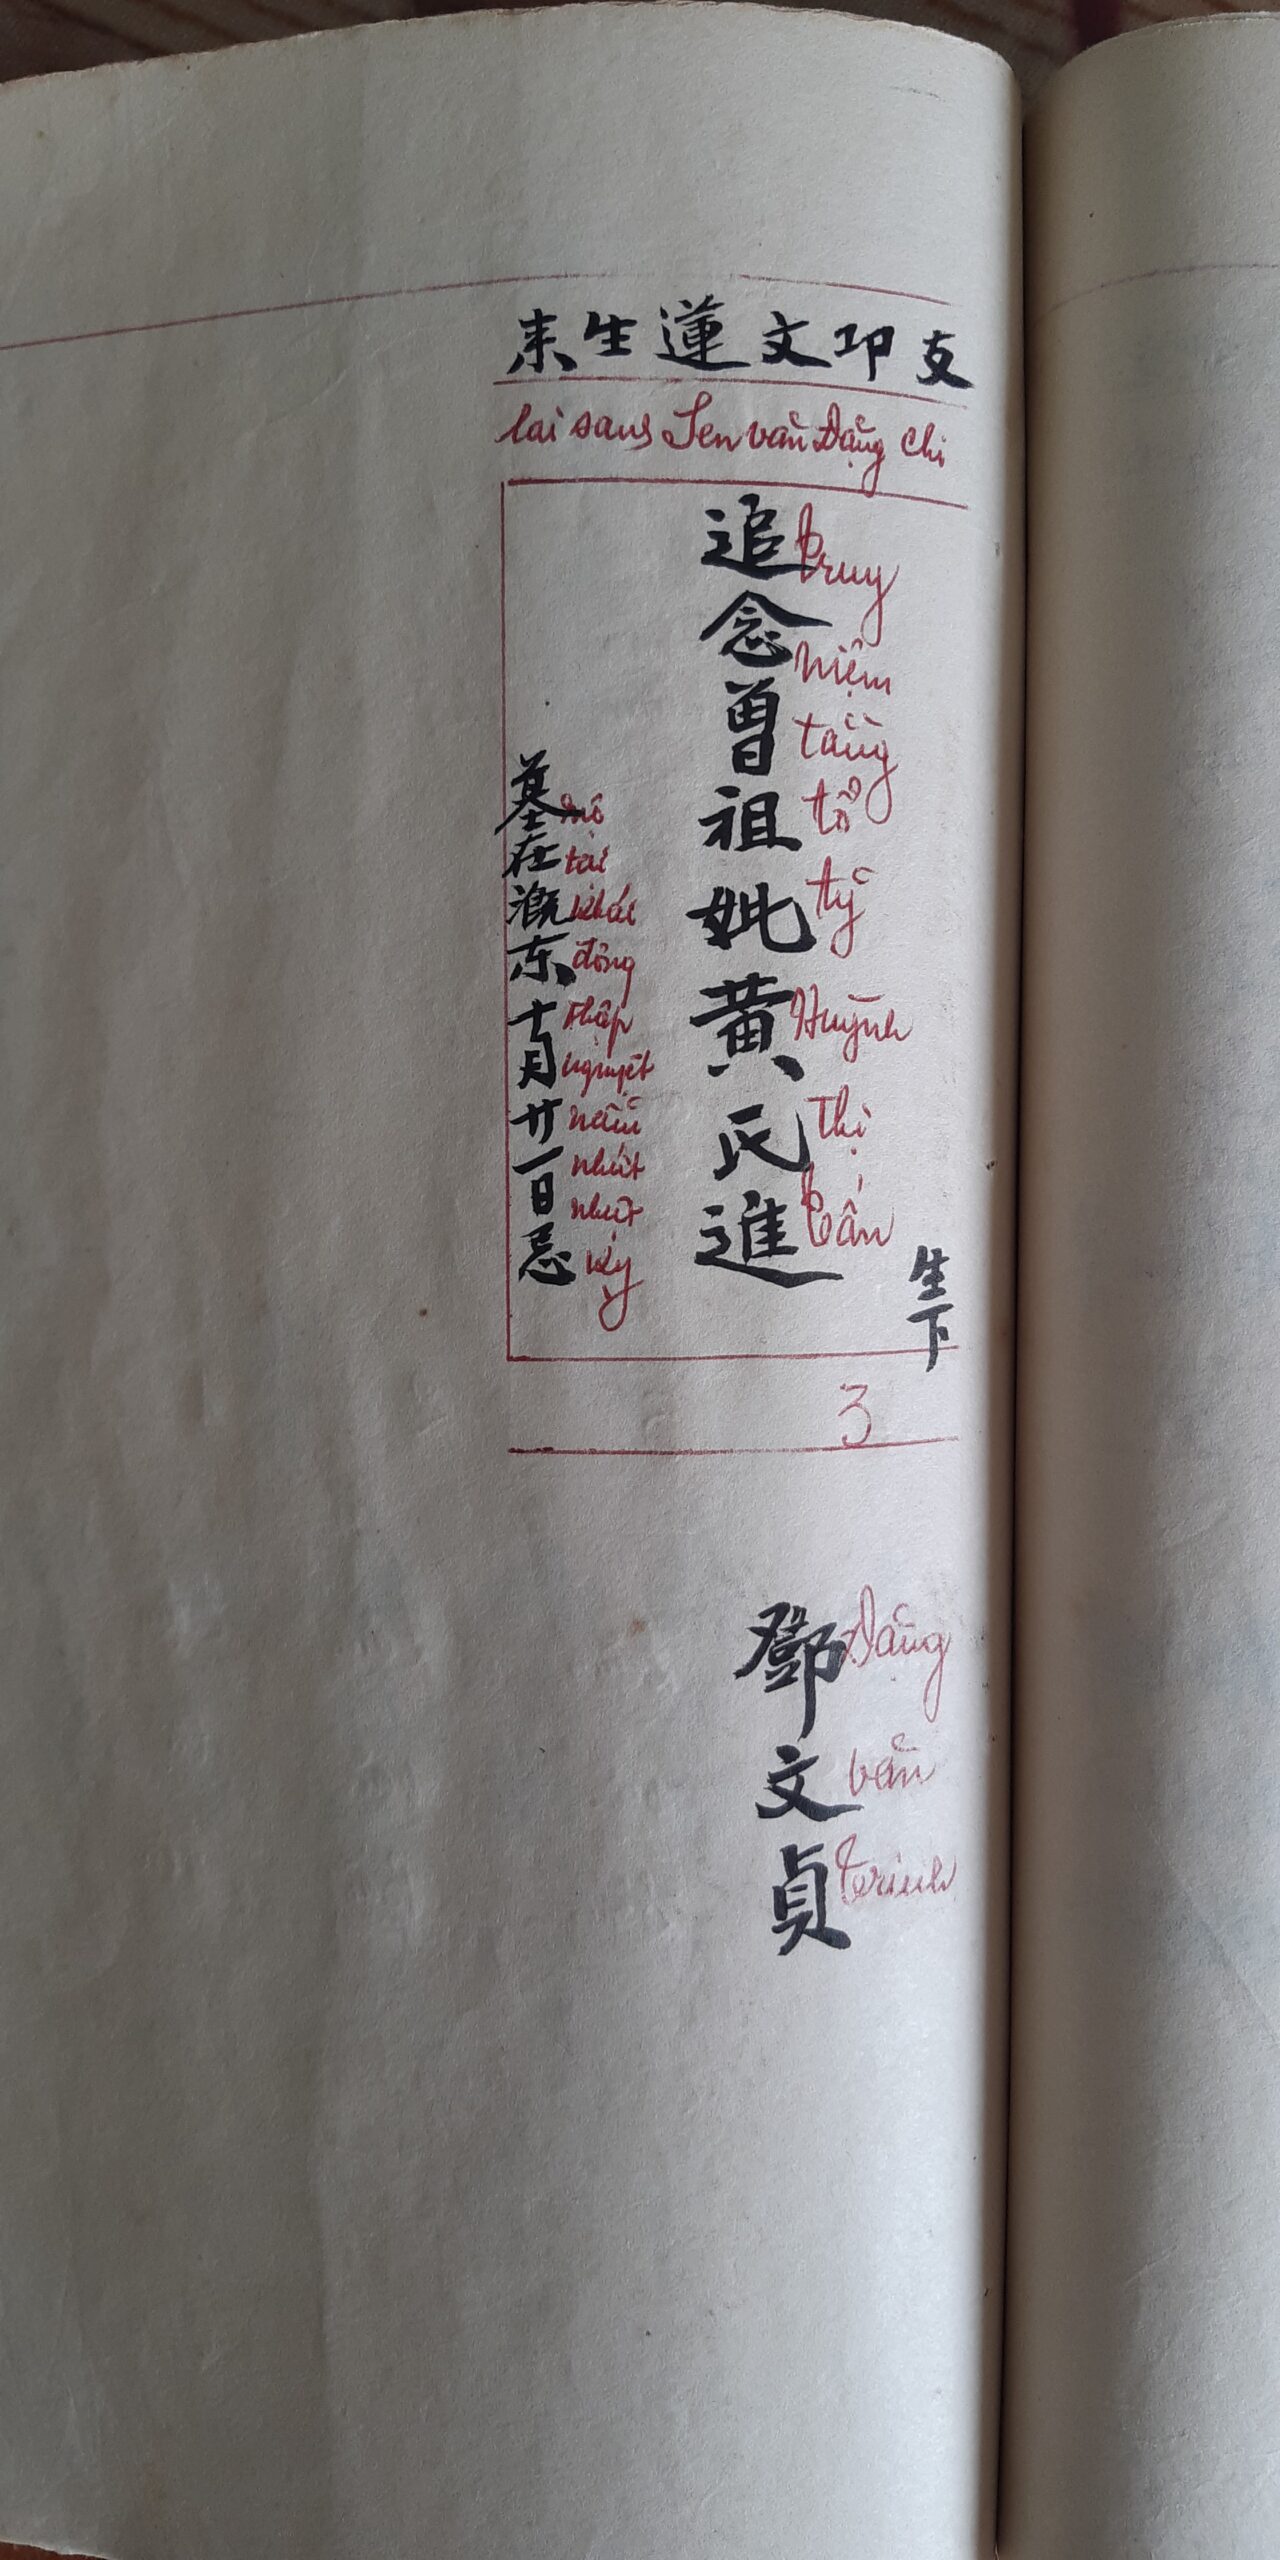 支卭文蓮生来
lai sanh Sen văn Đặng chi
生下
追念曾祖妣黃氏進
truy niệm tằng tổ tỷ Huỳnh Thị tấn
墓在溉东十月廿一日忌
mộ tại khái đông thập nguyệt năm nhứt nhựt kỵ
3
鄧文貞
Đặng văn trinh